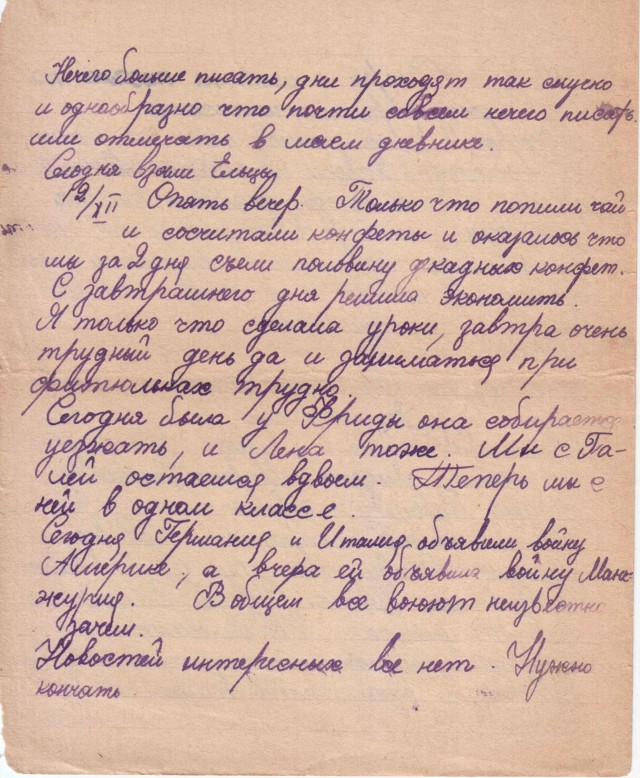 Нечего больше писать, дни проходят так скучно
и однообразно что почти совсем нечего писать
или отмечать в моем дневнике.
Сегодня взяли Ельцы
12/XII Опять вечер. Только что попили чай
и сосчитали конфеты и оказалось что
мы за 2 дня съели половину декадных конфет.
С завтрашнего дня решила экономить.
Я только что сделала уроки, завтра очень
трудный день да и заниматься при
фитюльках трудно.
Сегодня была у Фриды она собирается
уезжать, и Лена тоже. Мы с Га-
лей остаемся вдвоем. Теперь мы с
ней в одном классе.
Сегодня Германия и Италия объявили войну
Америке, а вчера ей объявила войну Манч-
журия. В общем все воюют неизвестно
зачем.
Новостей интересных все нет. Нужно
кончать